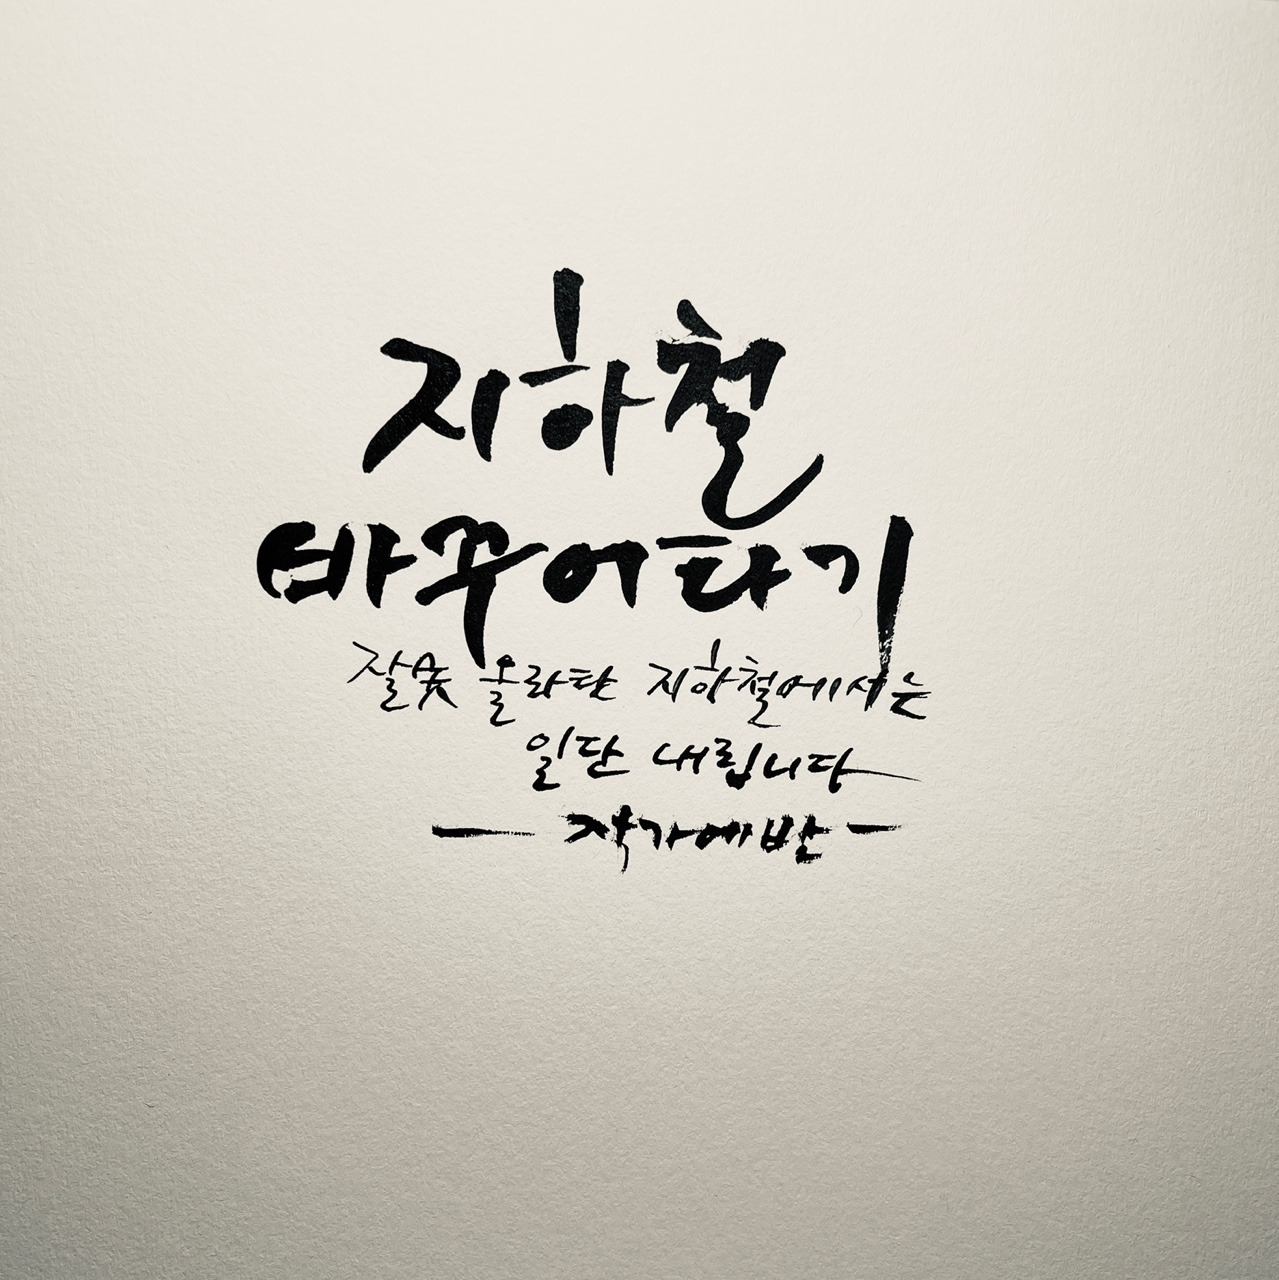 지하철
바꾸어타기
잘못 올라탄 지하철에서는
일단 내립니다
- 작가에반 -